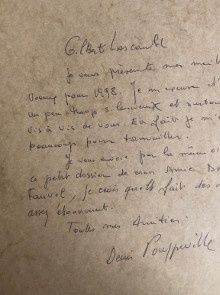 Gilbert Lascault
Je vous présente mes meil
voeux pour 1998. Je m'excuse d'
un peu trop silencieux et surtout
vis à vis de vous. En fait je m'i
beaucoup pour travailler.
Je vous envoie par la même o
ce petit dossier de mon amie D
Fauvel, je crois qu'elle fait des
assez étonnantes.
Toutes mes Amitiés.
Denis Pouppeville